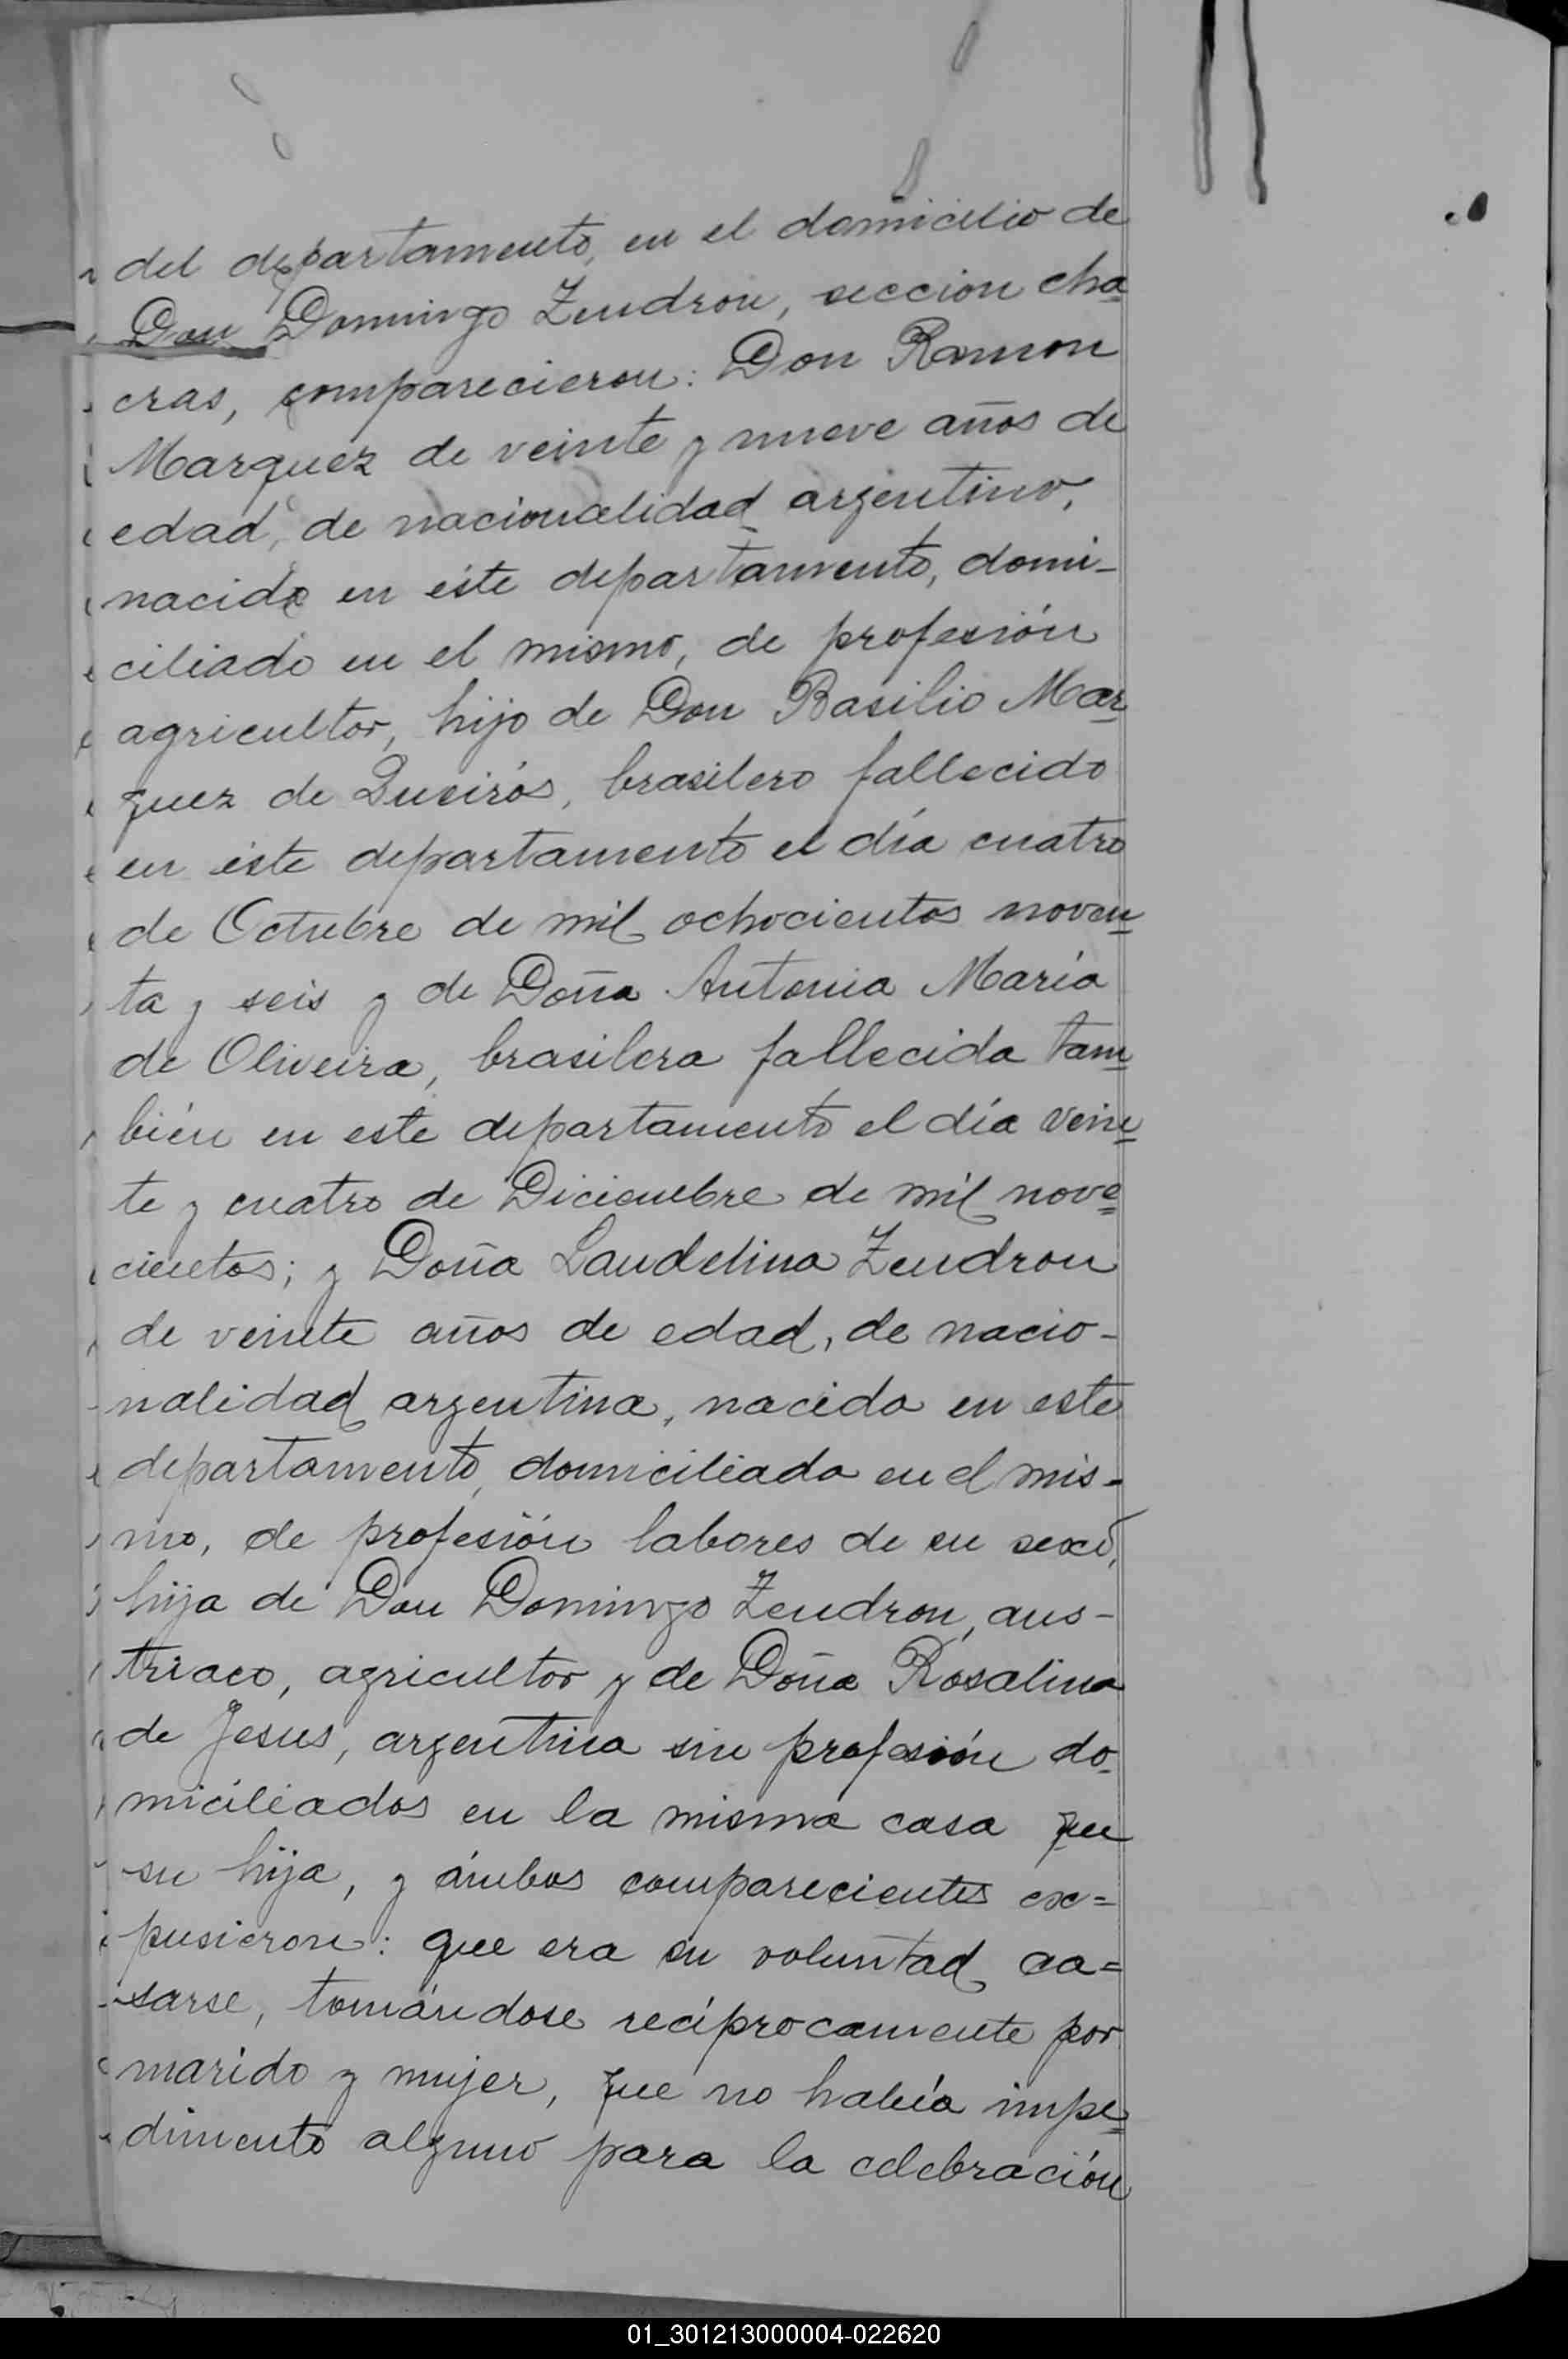 del departamento, en el domicilio de
Don Domingo Zendron, seccion cha
cras, comparecieron: Don Ramon
Marquez de veinte y nueve años de
edad, de nacionalidad argentino,
nacido en éste departamento, domi-
ciliado en el mismo, de profesión
agricultor, hijo de Don Basilio Mar
quez de Queirós, brasilero fallecido
en éste departamento el día cuatro
de Octubre de mil ochocientos noven
ta y seis y de Doña Antonia María
de Oliveira, brasilera fallecida tam
bién en este departamento el día vein
te y cuatro de Diciembre de mil nove
cientos; y Doña Laudelina Zendron
de veinte años de edad, de nacio-
nalidad argentina, nacida en este
departamento, domiciliada en el mis-
mo, de profesión labores de su sexo,
hija de Don Domingo Zendron, aus-
triaco, agricultor y de Doña Rosalina
de Jesus, argentina sin profesión do
miciliados en la misma casa que
su hija, y ámbos comparecientes ex=
pusieron: que era su voluntad ca=
sarse, tomándose recíprocamente por
marido y mujer, que no había impe
dimento alguno para la celebración
01_301213000004-022620